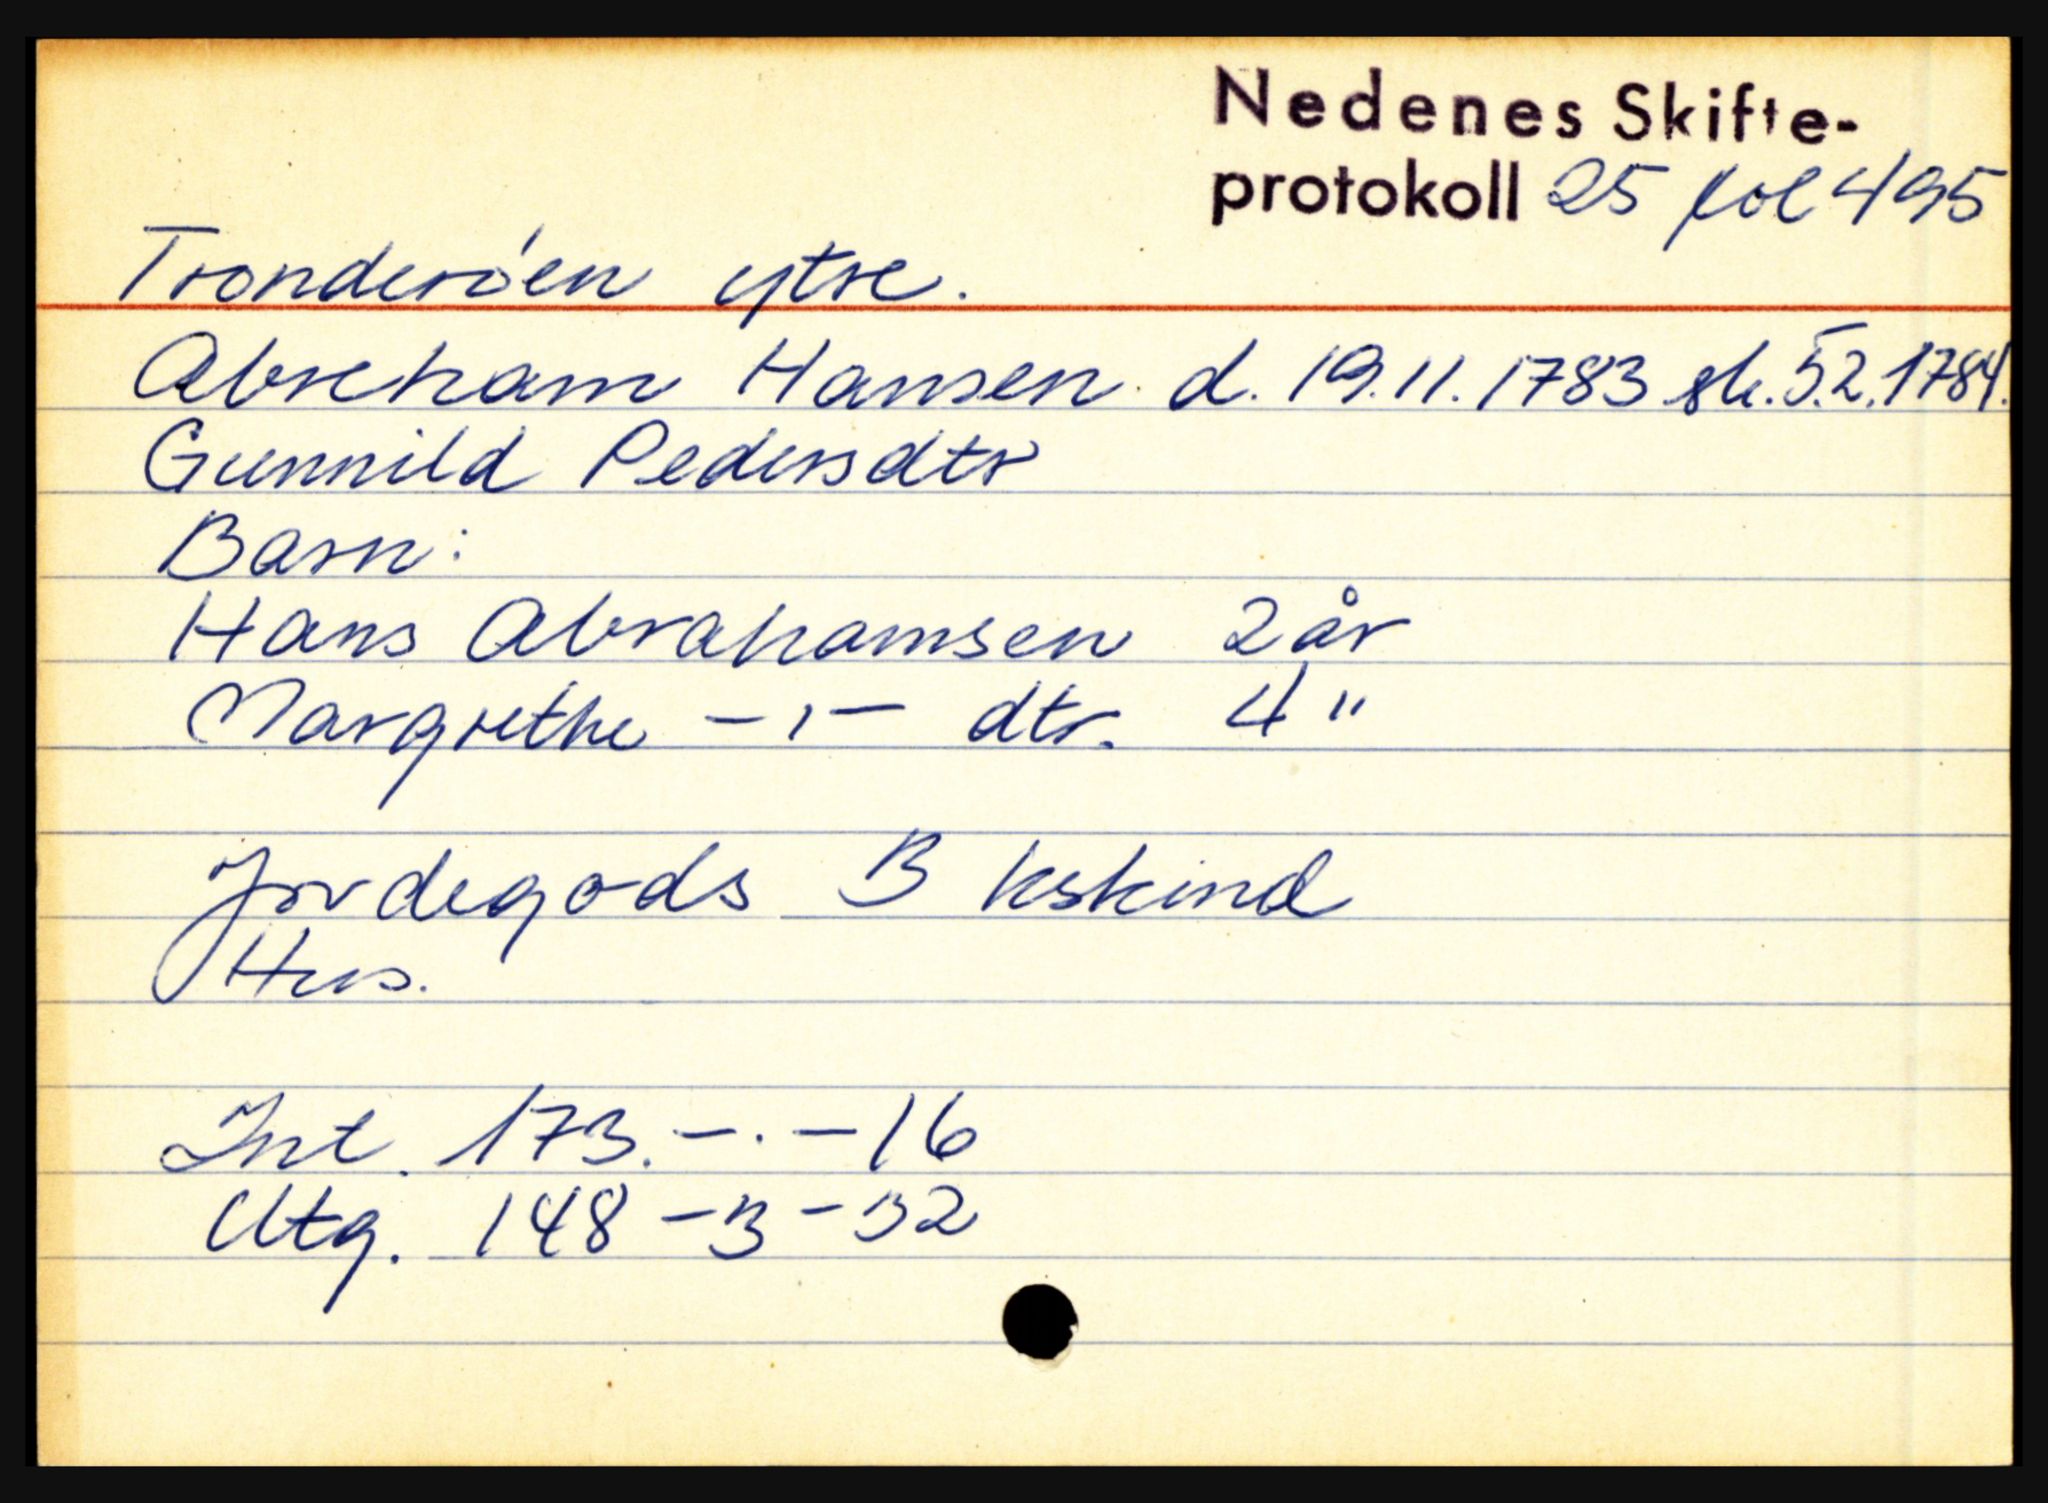 Nedenes Skifte-
protokoll 25 fol 495
Tronderöen ytre.
Abreham Hansen d. 19.11.1783 sk. 5.2.1784.
Gunnild Pedersdtr
Barn:
Hans Abrahamsen 2 år
Margrethe —,— dtr. 4 "
Jordegods 3 kskind
Hus.
Int. 173.—.—16
Utg. 148—3—32